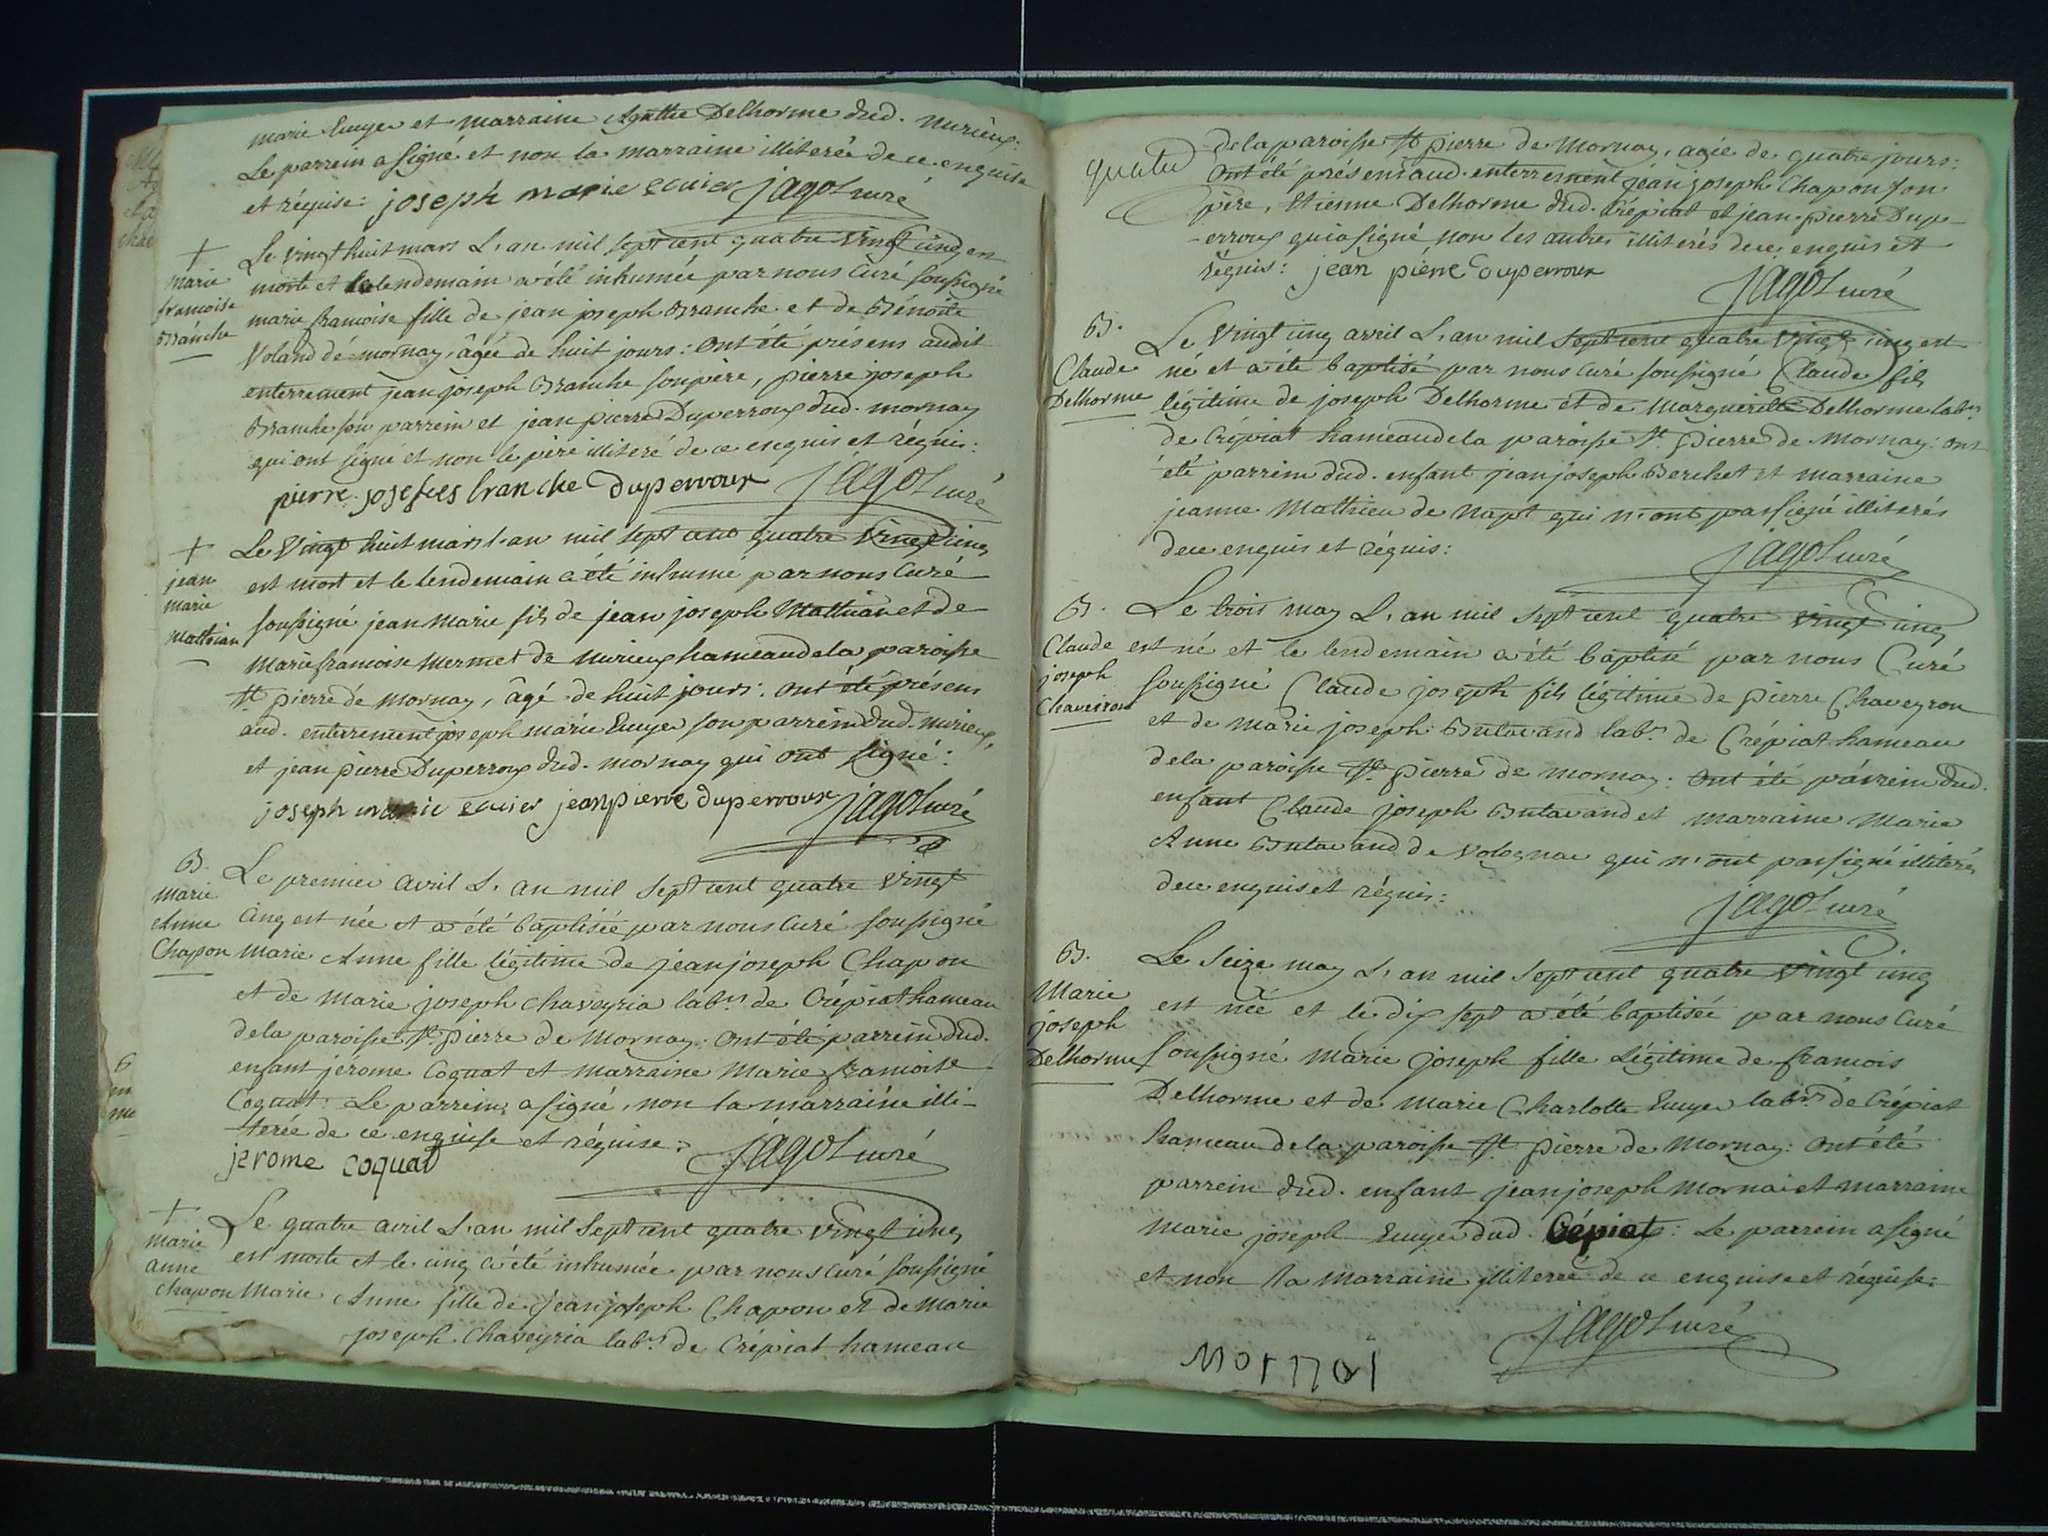 marie Ecuyer et marraine Agathe Delhorme dud. Nurieux:
Le parrein a signé et non la marraine illiterée de ce enquise
et réquise: joseph marie ecuier jagot curé
+
marie
francoise
Branche
Le vingt huit mars L'an mil sept cent quatre vingt cinq est
morte et le lendemain a été inhumée par nous Curé soussigné
marie francoise fille de jean joseph Branche et de Bénoite
Voland de mornay, âgée de huit jours: ont été présens audit
enterrement jean joseph Branche son père, pierre joseph
Branche son parrein et jean pierre Duperroux dud. mornay
qui ont signé et non le père illiteré de ce enquis et réquis:
pierre josefes branche Duperroux jagot curé
+
jean
marie
Matthian
Le Vingt huit mars L'an mil sept cent quatre vingt cinq
est mort et le lendemain a été inhumé par nous Curé
soussigné jean marie fils de jean joseph Matthian et de
Marie francoise Mermet de Nurieux hameau de la paroisse
St. pierre de mornay, âgé de huit jours: ont été présens
aud. enterrement joseph marie Ecuyer son parrein dud. nurieux,
et jean pierre Duperroux dud. mornay qui ont signé:
joseph marie ecuier jean pierre duperroux jagot curé
B.
Marie
Anne
Chapon
Le premier avril L'an mil sept cent quatre vingt
Cinq est née et a été baptisée par nous Curé soussigné
Marie Anne fille légitime de jean joseph Chapon
et de Marie joseph Chaveyria labrs. de Crépiat hameau
de la paroisse St. pierre de Mornay: ont été parrein dud.
enfant jérome Coquat et marraine Marie francoise
Coquat: Le parrein a signé, non la marraine illi-
terée de ce enquise et réquise:
jerome coquat jagot curé
+
marie
anne
chapon
Le quatre avril L'an mil sept cent quatre vingt cinq
est morte et le cinq a été inhumée par nous Curé soussigné
Marie Anne fille de jean joseph Chapon et de Marie
joseph Chaveyria labrs. de Crépiat hameau
de la paroisse St. pierre de Mornay, agée de quatre jours:
ont été présens aud. enterrement jean joseph Chapon son
père, Etienne Delhorme dud. Crépiat et jean pierre Dup-
-erroux qui a signé non les autres illiterés de ce enquis et
réquis: jean pierre Duperroux
jagot curé
B.
Claude
Delhorme
Le Vingt cinq avril L'an mil sept cent quatre vingt cinq est
né et a été baptisé par nous Curé soussigné Claude fils
légitime de joseph Delhorme et de Marguerite Delhorme labrs.
de Crépiat hameau de la paroisse St. pierre de Mornay: ont
été parrein dud. enfant jean joseph Berchet et marraine
jeanne Mathieu de Napt qui n'ont pas signé illiterés
de ce enquis et réquis:
jagot curé
B.
Claude
joseph
Chaveiron
Le trois may L'an mil sept cent quatre vingt cinq
est né et le lendemain a été baptisé par nous Curé
soussigné Claude joseph fils légitime de pierre Chaveyron
et de Marie joseph Butavand labrs. de Crépiat hameau
de la paroisse St. pierre de mornay: ont été parrein dud.
enfant Claude joseph Butavand et marraine Marie
Anne Butavand de Volognat qui n'ont pas signé illiterés
de ce enquis et réquis:
jagot curé
B.
Marie
joseph
Delhorme
Le Seize may L'an mil sept cent quatre vingt cinq
est née et le dix sept a été baptisée par nous Curé
soussigné Marie joseph fille Légitime de francois
Delhorme et de Marie Charlotte Ecuyer labrs. de Crépiat
hameau de la paroisse St. pierre de Mornay: ont été
parrein dud. enfant jean joseph Mornai et marraine
Marie joseph Ecuyer dud. Crépiat: Le parrein a signé
et non la marraine illiterée de ce enquise et réquise:
jagot curé